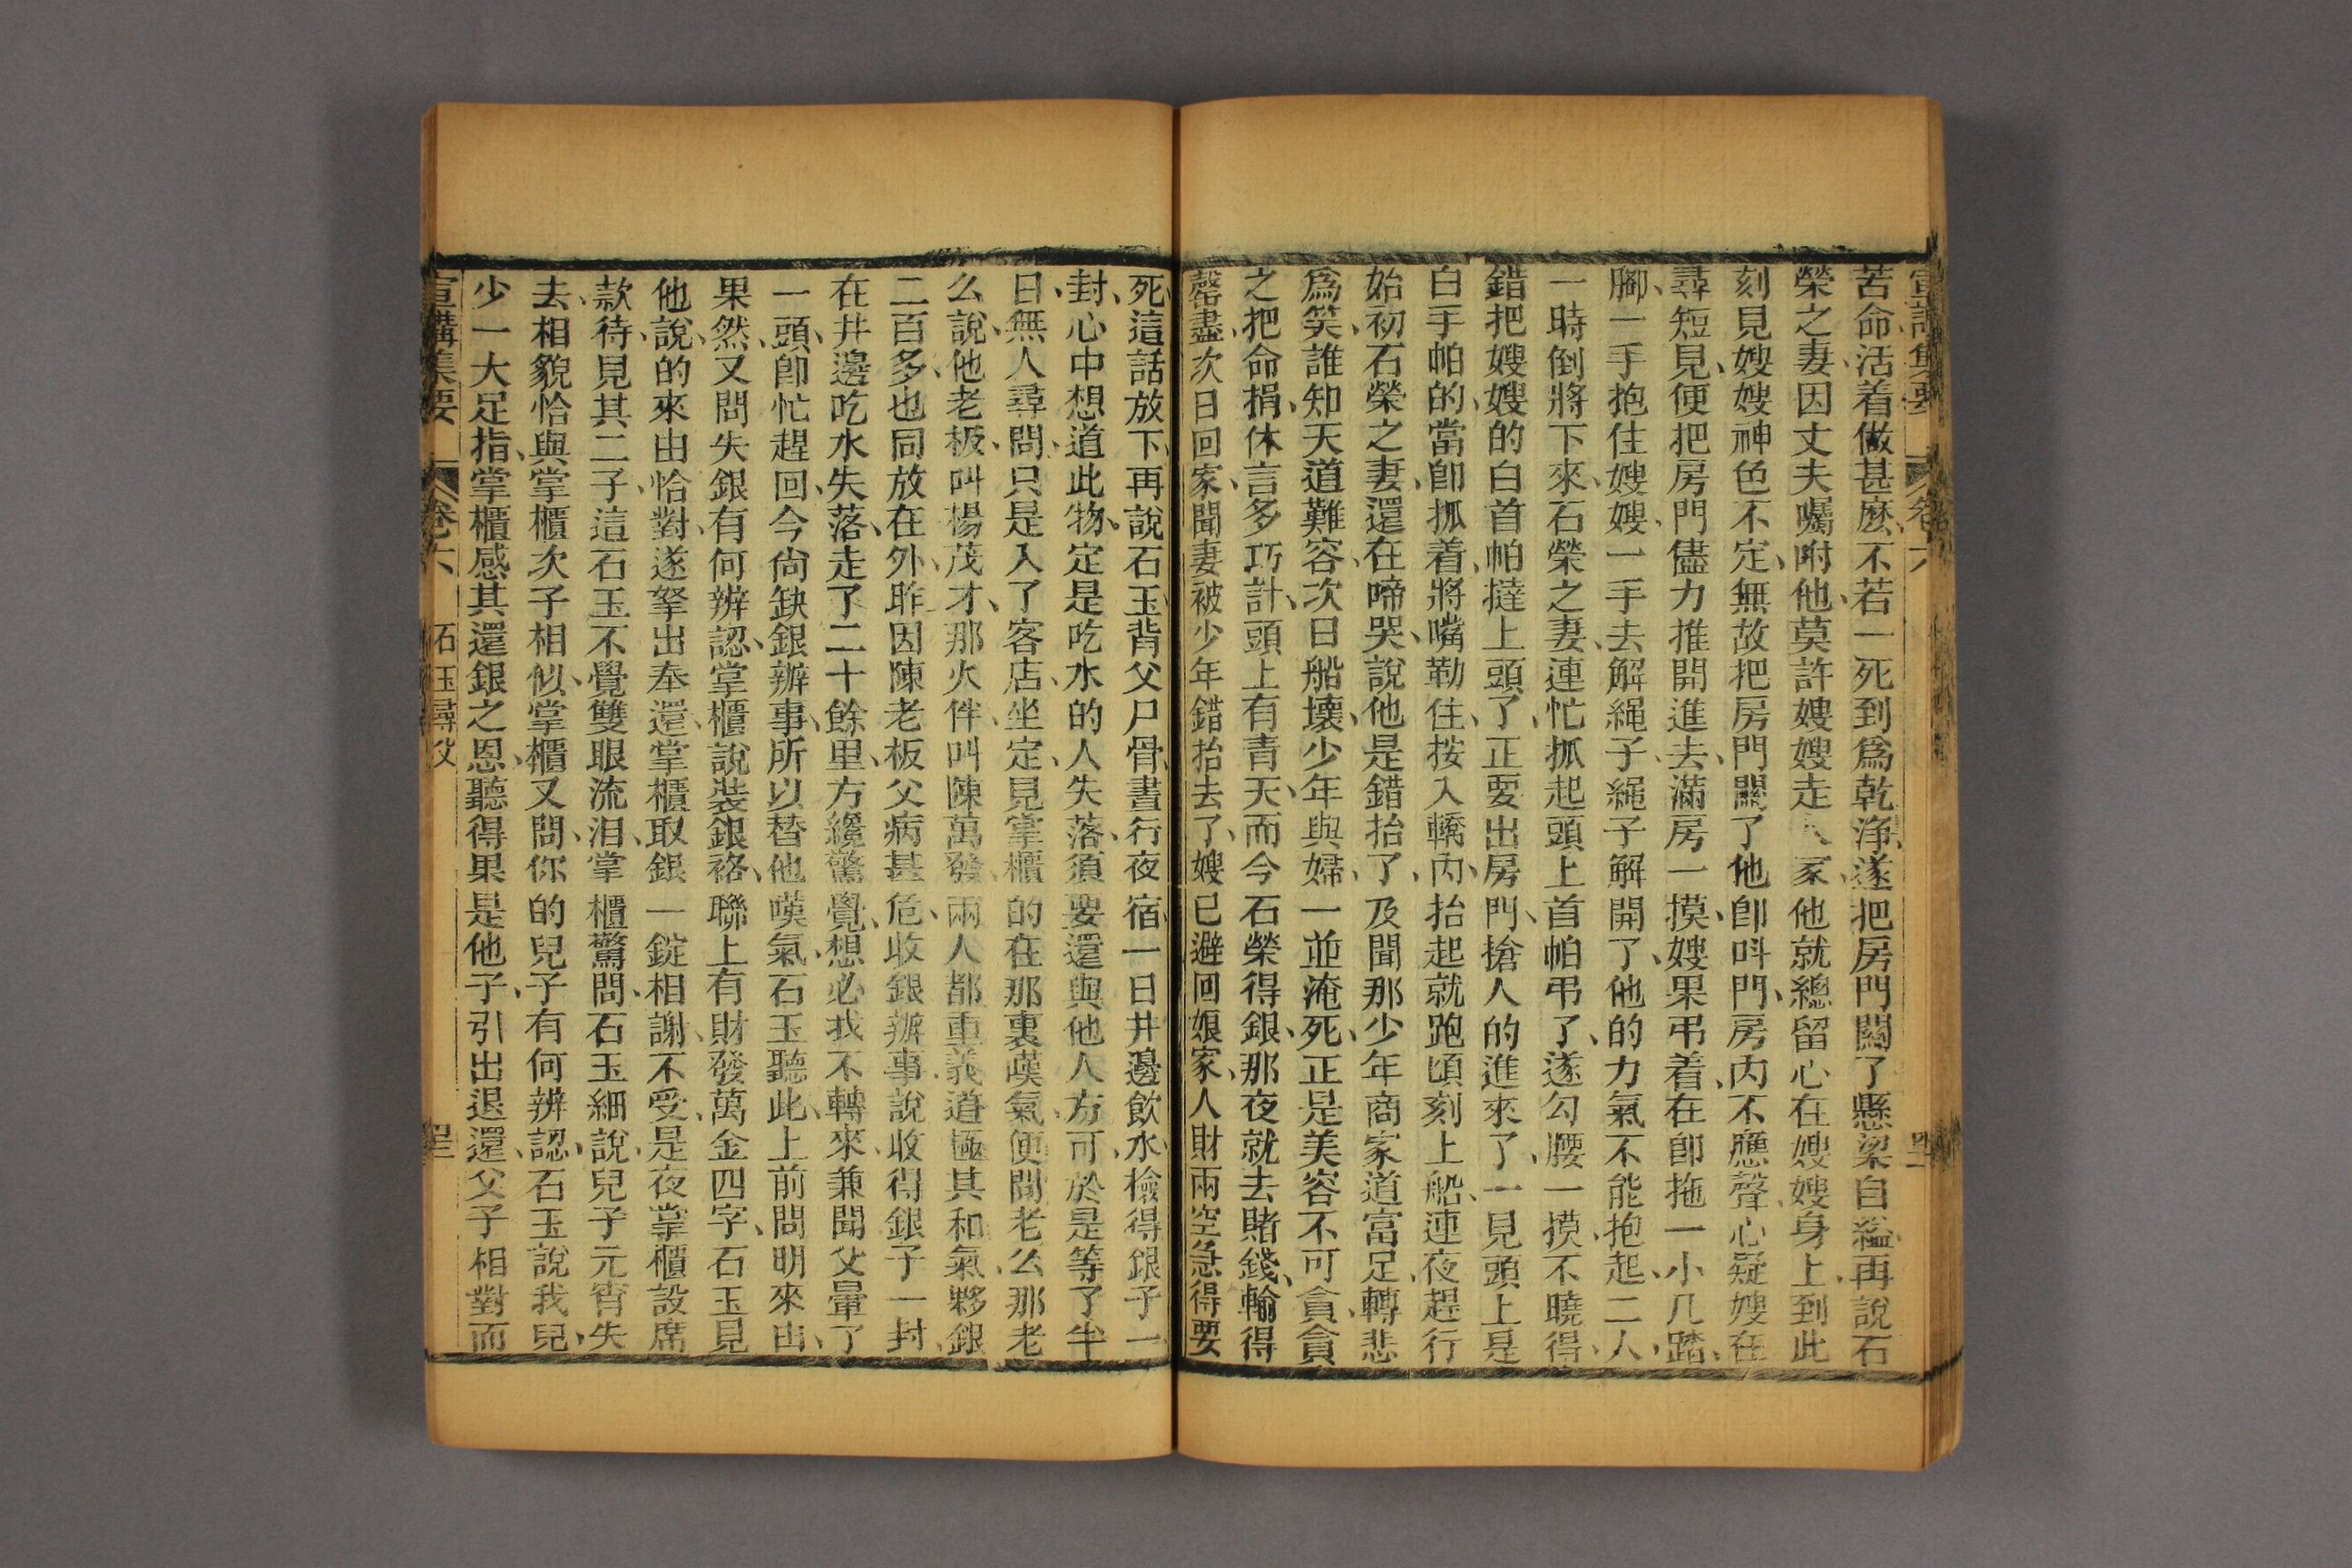 宣講集要 卷六
苦命活着做甚麽不若一死到爲乾净遂把房門關了懸梁自縊再說石
榮之妻因丈夫囑咐他莫許嫂嫂走人家他就總留心在嫂嫂身上到此
刻見嫂嫂神色不定無故把房門關了他卽呌門房內不應聲心疑嫂在
尋短見便把房門儘力推開進去滿房一摸嫂果弔着在卽拖一小几踏
腳一手抱住嫂嫂一手去解繩子繩子解開了他的力氣不能抱起二人
一時倒將下來石榮之妻連忙抓起頭上首帕弔了遂勾腰一摸不曉得
錯把嫂嫂的白首帕撻上頭了正要出房門搶人的進來了一見頭上是
白手帕的當卽抓着將嘴勒住按入轎內抬起就跑頃刻上船連夜趕行
始初石榮之妻還在啼哭說他是錯抬了及聞那少年商家道富足轉悲
爲笑誰知天道難容次日船壞少年與婦一並淹死正是美容不可貪貪
之把命捐休言多巧計頭上有青天而今石榮得銀那夜就去賭錢輸得
罄盡次日回家聞妻被少年錯抬去了嫂已避回娘家人財兩空急得要
死這話放下再說石玉背父尸骨晝行夜宿一日井邊飲水檢得銀子一
封心中想道此物定是吃水的人失落須要還與他人方可於是等了半
日無人尋問只是入了客店坐定見掌櫃的在那裏嘆氣便問老么那老
么說他老板叫楊茂才那火伴叫陳萬發兩人都重義道極其和氣夥銀
二百多也同放在外昨因陳老板父病甚危收銀辦事說收得銀子一封
在井邊吃水失落走了二十餘里方纔驚覺想必找不轉來兼聞父暈了
一頭卽忙趕回今尙缺銀辦事所以替他嘆氣石玉聽此上前問明來由
果然又問失銀有何辨認掌櫃說裝銀袼聯上有財發萬金四字石玉見
他說的來由恰對遂拏出奉還掌櫃取銀一錠相謝不受是夜掌櫃設席
款待見其二子這石玉不覺雙眼流泪掌櫃驚問石玉細說兒子元宵失
去相貌恰與掌櫃次子相似掌櫃又問你的兒子有何辨認石玉說我兒
少一大足指掌櫃感其還銀之恩聽得果是他子引出退還父子相對而
宣講集要 卷六 石玉尋父